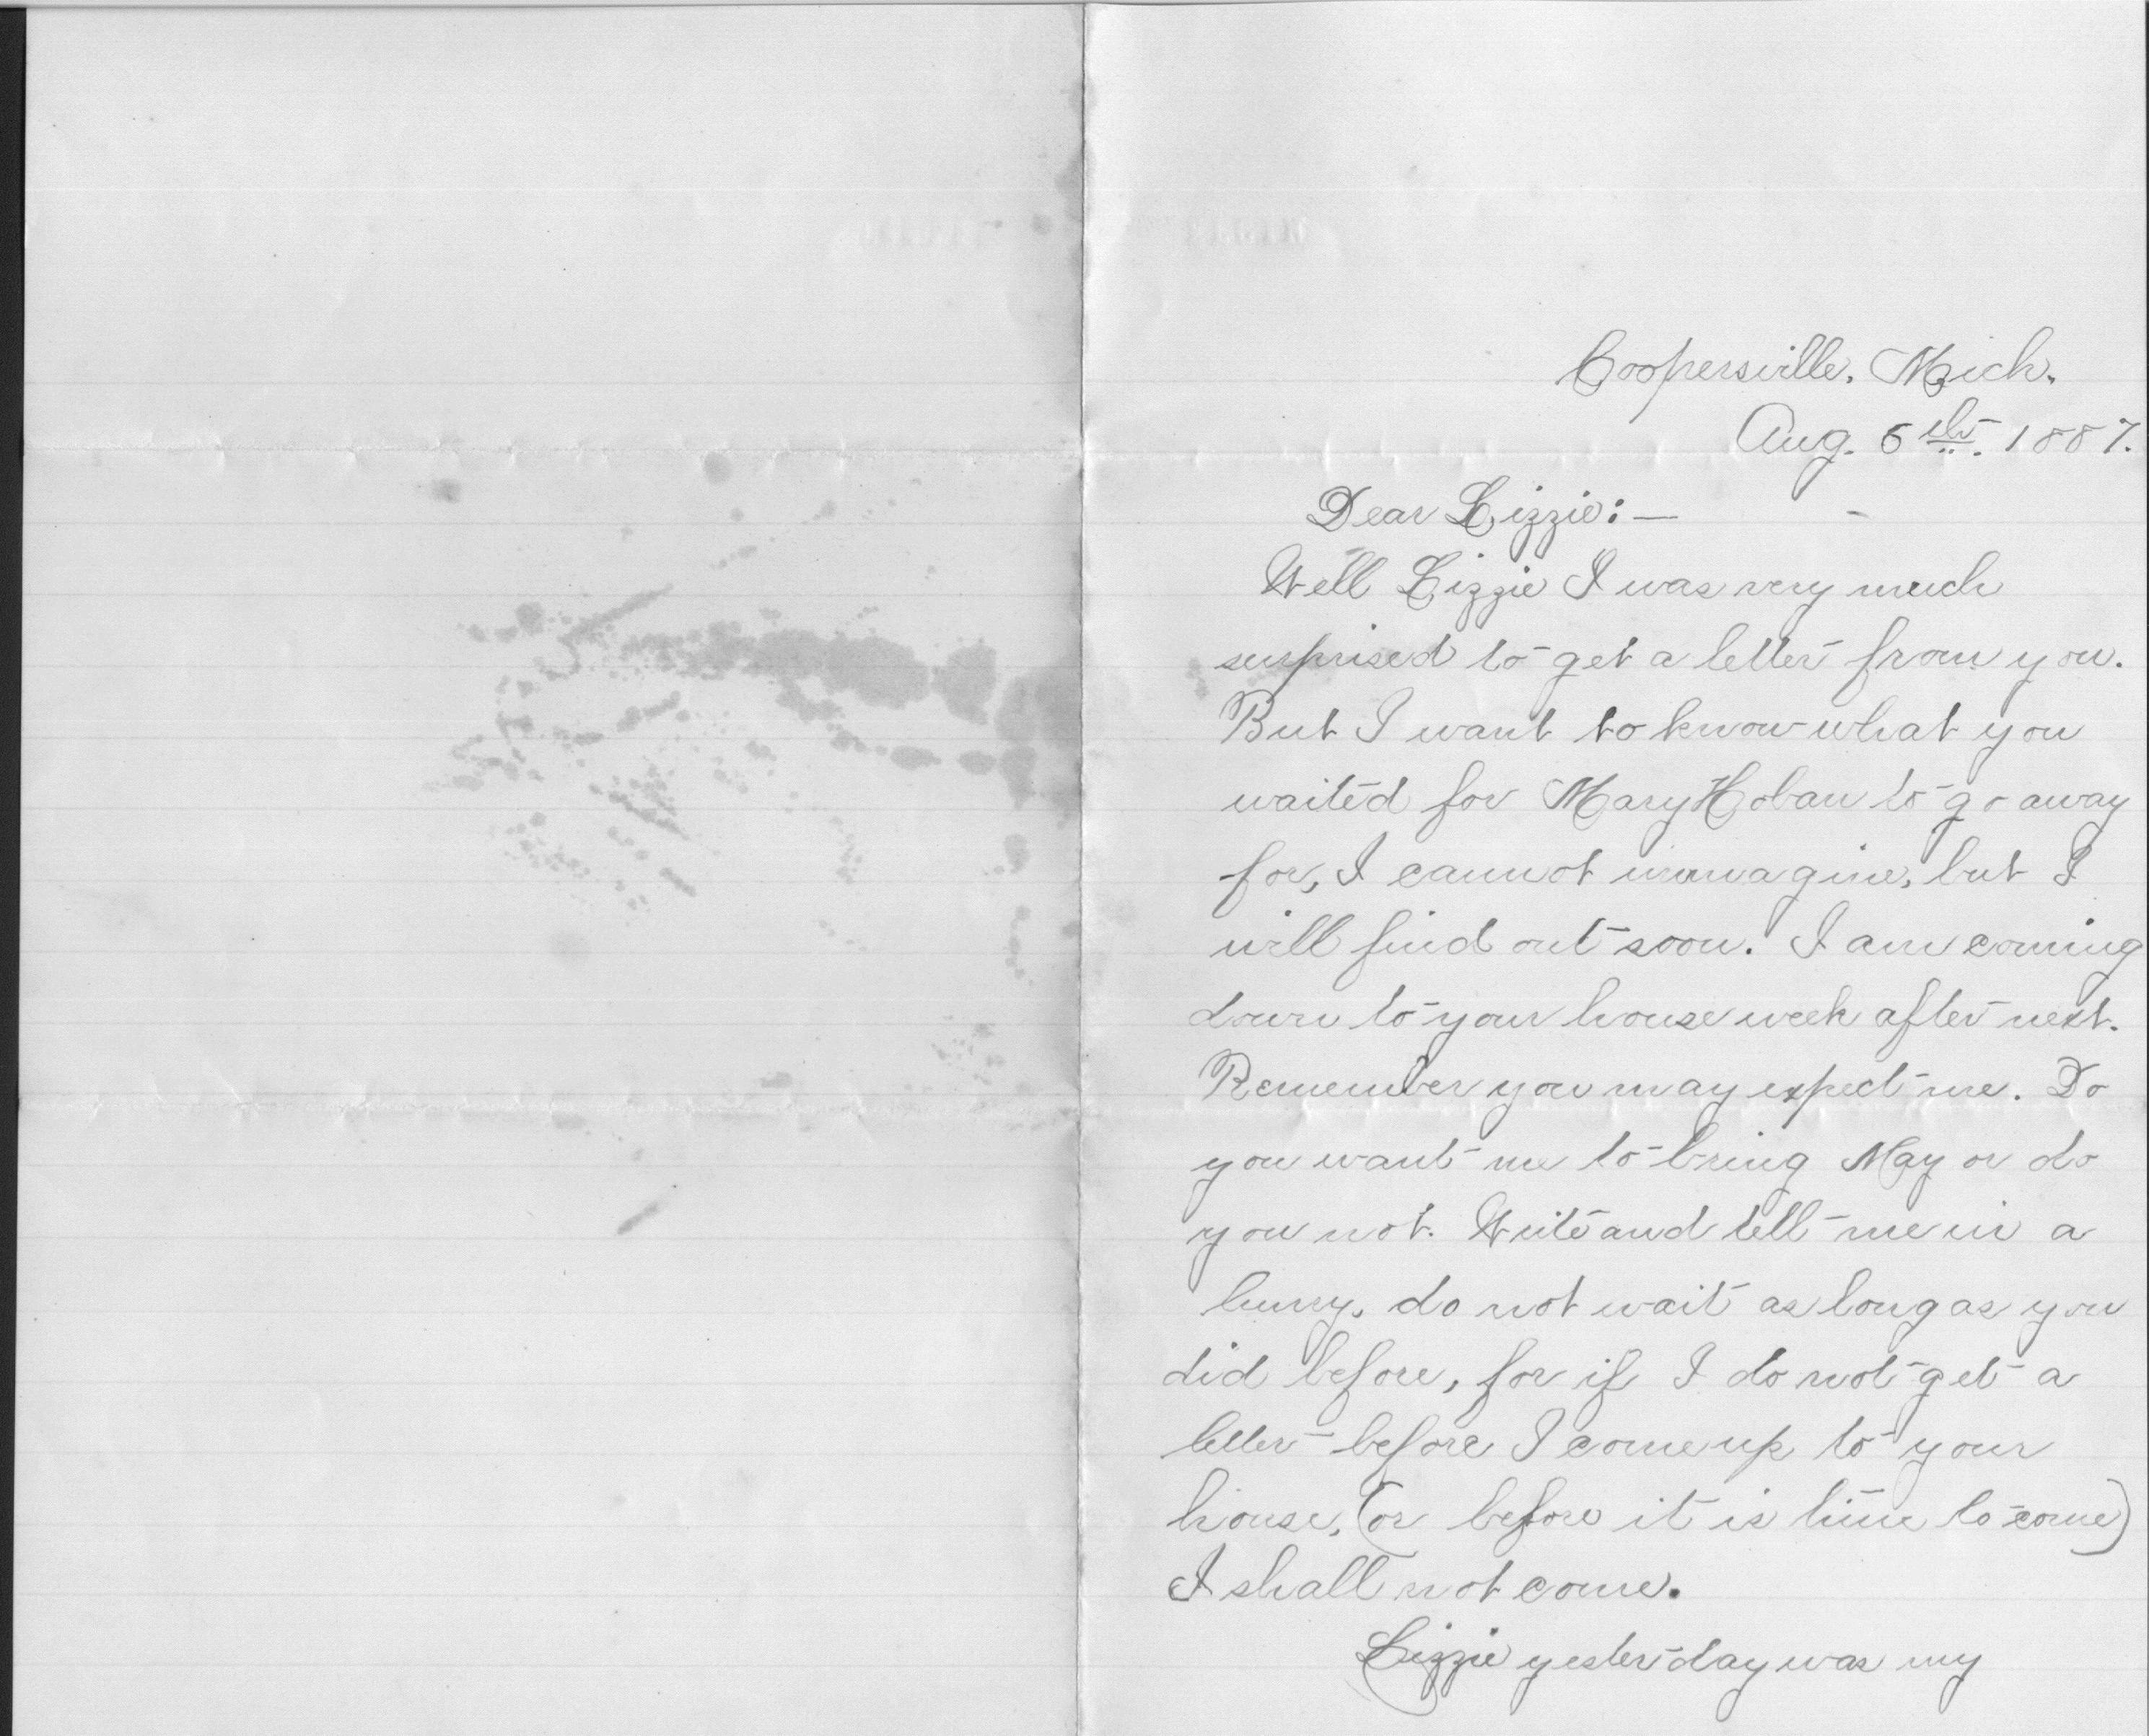 Coopersville, Mich.
Aug. 6th. 1887.
Dear Lizzie:—
Well Lizzie I was very much
surprised to get a letter from you.
But I want to know what you
waited for Mary Hoban to go away
for, I cannot immagine, but I
will find out soon. I am coming
down to your house week after next.
Remember you may expect me. Do
you want me to bring May or do
you not. Write and tell me in a
hurry, do not wait as long as you
did before, for if I do not get a
letter before I come up to your
house, (or before it is time to come)
I shall not come.
Lizzie yesterday was my